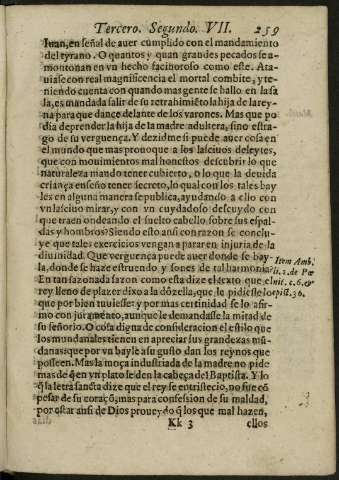 Tercero. Segundo. VII. 259
Iuan, en señal de auer cumplido con el mandamiento
del tyrano. O quantos y quan grandes pecados se a-
montonan en vn hecho facinoroso como este. Ata
uia se con real magnificencia el mortal combite, y te-
niendo cuenta con quando mas gente se hallo en la sa
la, es mandada salir de su retrahimiēto la hija de la rey-
na para que dance delante de los varones. Mas que po
dia deprender la hija de la madre adultera, sino estra-
go de su verguença. Y dezidme si puede auer cosa en
el mundo que mas prouoque a los lasciuos deleytes,
que con mouimientos mal honestos descubrir lo que
naturaleza mando tener cubierto, o lo que la deuida
criança enseño tener secreto, lo qual con los tales bay
les en alguna manera se publica, ayudando a ello con
vn lasciuo mirar, y con vn cuydadoso descuydo con
que traen ondeando el suelto cabello sobre sus espal-
das y hombros? Siendo esto ansi con razon se conclu-
ye que tales exercicios vengan a parar en injuria de la
diuinidad. Que verguença puede auer donde se bay-
la, donde se haze estruendo y sones de tal harmonia?
En tan sazonada sazon como esta dize el texto que el
rey lleno de plazer dixo a la dōzella, que le pidiesse lo
que por bien tuuiesse: y por mas certinidad se lo afir-
mo con juramento, aunque le demandasse la mitad de
su señorio. O cosa digna de consideracion el estilo que
los mundanales tienen en apreciar sus grandezas mū-
danas: que por vn bayle a su gusto dan los reynos que
posseen. Mas la moça industriada de la madre no pide
mas de q̄ en vn plato se den la cabeça del Baptista. Y lo
q̄ la letra sancta dize que el rey se entristecio, no fue cō
pesar de su coraçō, mas para confession de su maldad,
por estar ansi de Dios proueydo q̄ los que mal hazen,
Kk 3 ellos
Item Amb.
li. 2. de Pœ
nit. c. 6. &
epist. 36.